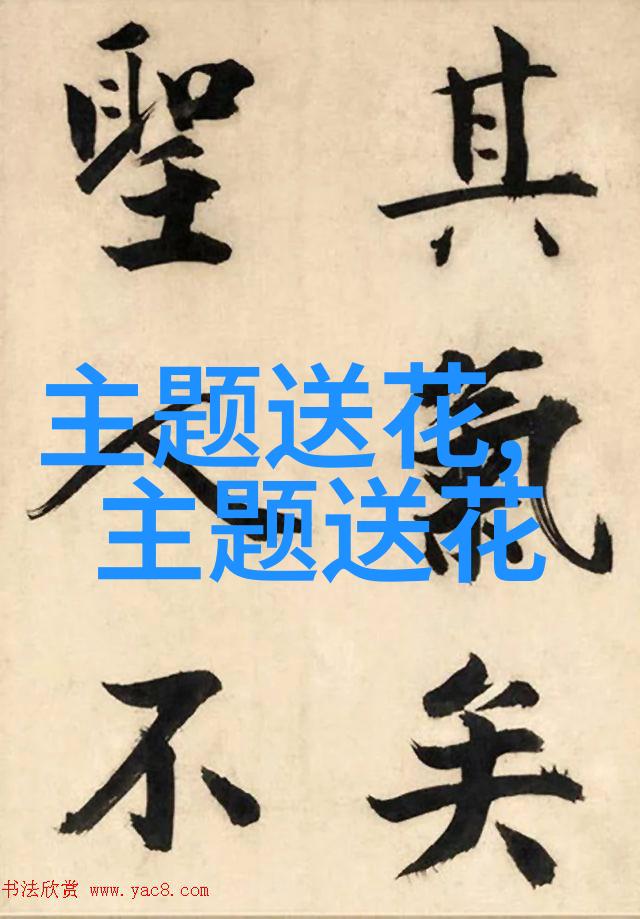 其氣矣
聖人不
主题送花,
主题送花
书法欣赏 www.yac8.com